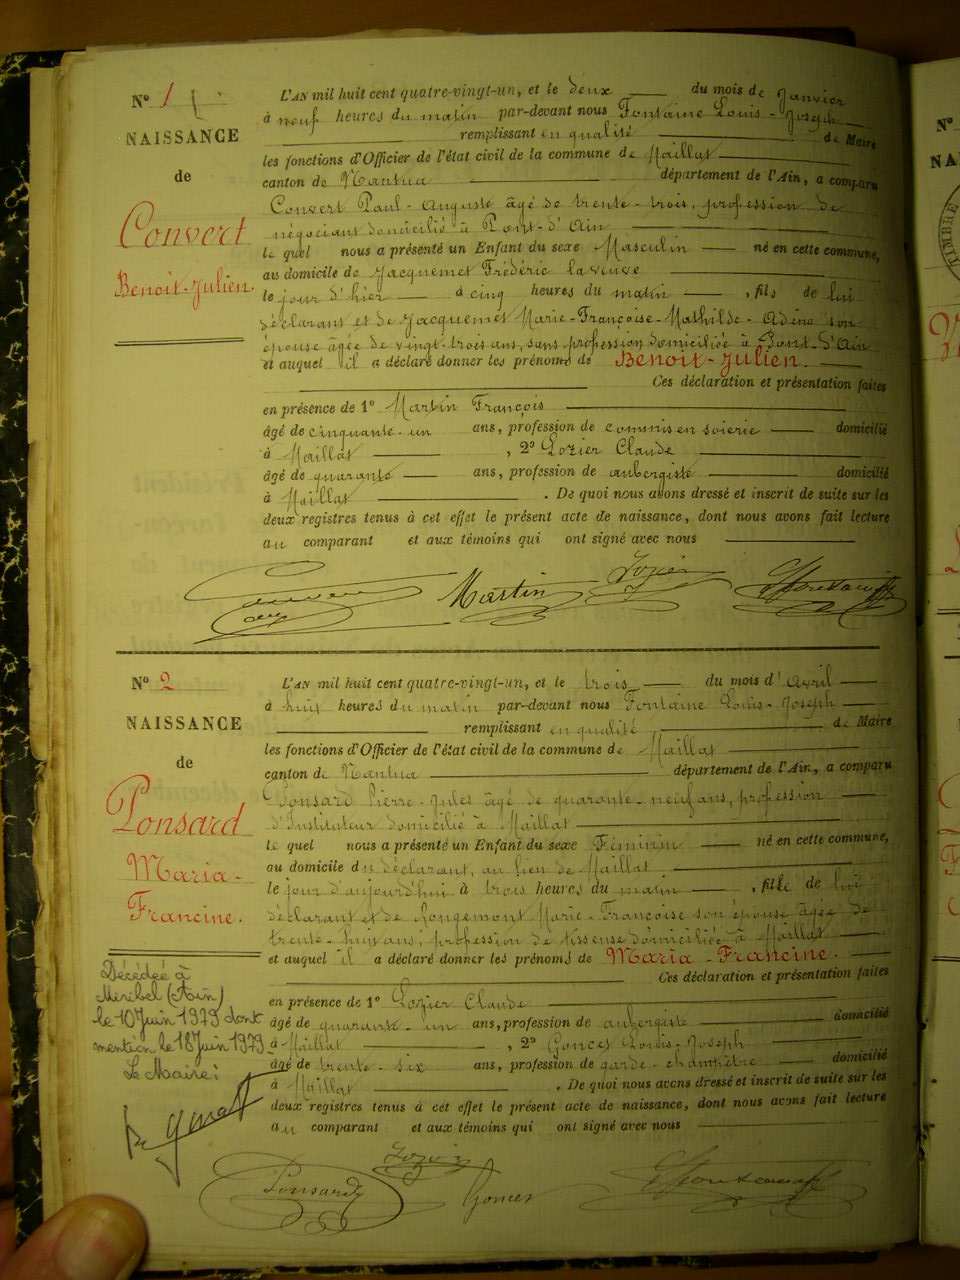 N° 1
NAISSANCE
de
Convert
Benoit-Julien.
L'AN mil huit cent quatre-vingt-un, et le deux du mois de Janvier
à neuf heures du matin par-devant nous Fontaine Louis-Joseph
remplissant en qualité de Maire
les fonctions d'Officier de l'état civil de la commune de Maillat
canton de Nantua département de l'Ain, a comparu
Convert Paul-Auguste âgé de trente-trois, profession de
négociant domicilié à Pont-d'Ain
le quel nous a présenté un Enfant du sexe Masculin né en cette commune,
au domicile de Jacquemet Frédéric la veuve
le jour d'hier à cinq heures du matin, fils de lui
déclarant et de Jacquemet Marie-Françoise-Mathilde-Adèle son
épouse âgée de vingt-trois ans, sans profession domiciliée à Pont-d'Ain
et auquel il a déclaré donner les prénoms de Benoit-Julien.
Ces déclaration et présentation faites
en présence de 1° Martin François
âgé de cinquante-un ans, profession de commis en soierie domicilié
à Maillat, 2° Lozier Claude
âgé de quarante ans, profession de aubergiste domicilié
à Maillat. De quoi nous avons dressé et inscrit de suite sur les
deux registres tenus à cet effet le présent acte de naissance, dont nous avons fait lecture
au comparant et aux témoins qui ont signé avec nous
Martin Lozier
N° 2
NAISSANCE
de
Ponsard
Maria-
Francine.
L'AN mil huit cent quatre-vingt-un, et le trois du mois d'Avril
à huit heures du matin par-devant nous Fontaine Louis-Joseph
remplissant en qualité de Maire
les fonctions d'Officier de l'état civil de la commune de Maillat
canton de Nantua département de l'Ain, a comparu
Ponsard Pierre-Jules âgé de quarante-neuf ans, profession
d'Instituteur domicilié à Maillat
le quel nous a présenté un Enfant du sexe Féminin né en cette commune,
au domicile du déclarant, au lieu de Maillat
le jour d'aujourd'hui à trois heures du matin, fille de lui
déclarant et de Longemont Marie-Françoise son épouse âgée de
trente-huit ans, profession de tisseuse domiciliée à Maillat
et auquel il a déclaré donner les prénoms de Maria-Francine.
Ces déclaration et présentation faites
en présence de 1° Lozier Claude
âgé de quarante-un ans, profession de aubergiste domicilié
à Maillat, 2° Gonces Louis-Joseph
âgé de trente-six ans, profession de garde-champêtre domicilié
à Maillat. De quoi nous avons dressé et inscrit de suite sur les
deux registres tenus à cet effet le présent acte de naissance, dont nous avons fait lecture
au comparant et aux témoins qui ont signé avec nous
Décédée à
Miribel (Ain)
le 10 Juin 1979 dont
mention le 18 Juin 1979.
Le Maire:
Lozier
Ponsard Gonces
N°
TIMBRE